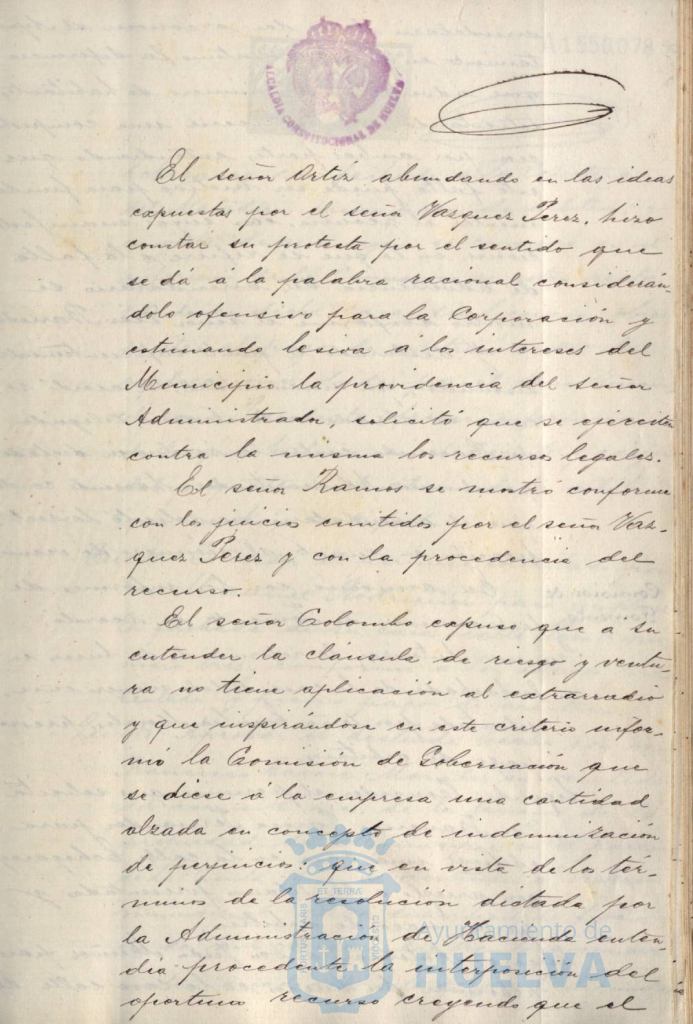 ALCALDIA CONSTITUCIONAL DE HUELVA
A1556078
El señor Ortiz abundando en las ideas
expuestas por el señor Vazquez Perez, hizo
constar su protesta por el sentido que
se dá á la palabra racional considerán-
dolo ofensivo para la Corporación y
estimando lesiva á los intereses del
Municipio la providencia del señor
Administrador, solicitó que se ejerciten
contra la misma los recursos legales.
El señor Ramos se mostró conforme
con los juicios emitidos por el señor Vaz-
quez Perez y con la procedencia del
recurso.
El señor Colombo expuso que á su
entender la cláusula de riesgo y ventu-
ra no tiene aplicación al extrarradio
y que inspirándose en este criterio infor-
mó la Comisión de Gobernación que
se diese á la empresa una cantidad
alzada en concepto de indemnización
de perjuicios: que en vista de los tér-
minos de la resolución dictada por
la Administración de Hacienda enten-
dia procedente la interposición del
oportuno recurso creyendo que el
Ayuntamiento de
HUELVA